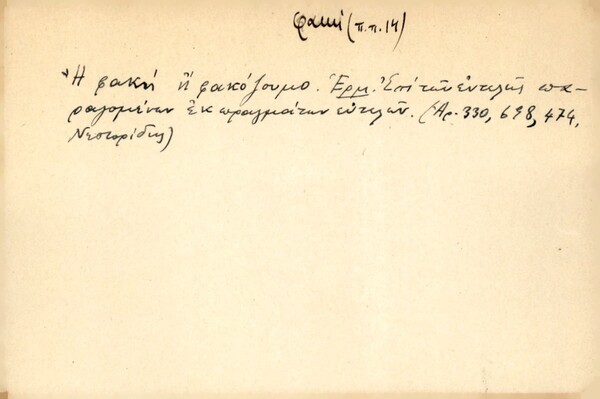 φακή (π.π. 14)
Ἡ φακή ἤ φακόζουμο. Ἑρμ. Ἐπί τῶν εὐτελῶς πα-
ραγομένων ἐκ πραγμάτων εὐτελῶν. (Ἀρ. 330, 698, 474,
Νεστορίδης)